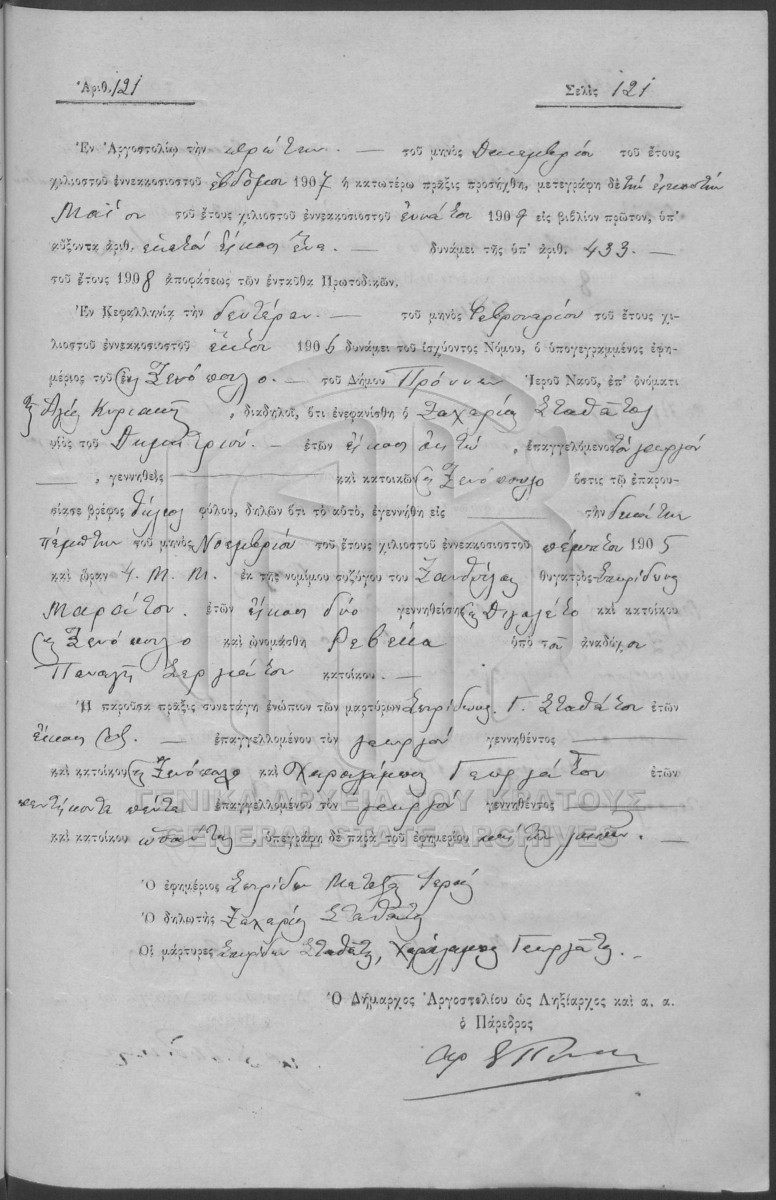 Ἀριθ. 121 Σελὶς 121
Ἐν Ἀργοστολίῳ τὴν πρώτην. — τοῦ μηνὸς Δεκεμβρίου τοῦ ἔτους
χιλιοστοῦ ἐννεακοσιοστοῦ ἑβδόμου 1907 ἡ κατωτέρω πρᾶξις προσήχθη, μετεγράφη δὲ τὴν εἰκοστὴν
Μαΐου τοῦ ἔτους χιλιοστοῦ ἐννεακοσιοστοῦ ἐννάτου 1909 εἰς βιβλίον πρῶτον, ὑπ'
αὔξοντα ἀριθ. ἑκατὸν εἴκοσι ἕνα. — δυνάμει τῆς ὑπ' ἀριθ. 433. —
τοῦ ἔτους 1908 ἀποφάσεως τῶν ἐνταῦθα Πρωτοδικῶν.
Ἐν Κεφαλληνίᾳ τὴν δευτέραν. — τοῦ μηνὸς Φεβρουαρίου τοῦ ἔτους χι-
λιοστοῦ ἐννεακοσιοστοῦ ἕκτου 1906 δυνάμει τοῦ ἰσχύοντος Νόμου, ὁ ὑπογεγραμμένος ἐφη-
μέριος τοῦ ἐν Ξενόπουλο. — τοῦ Δήμου Πρόννων Ἱεροῦ Ναοῦ, ἐπ' ὀνόματι
τῆς Ἁγίας Κυριακῆς, διαδηλοῖ, ὅτι ἐνεφανίσθη ὁ Ζαχαρίας Σταθάτος
υἱὸς τοῦ Δημητρίου. — ἐτῶν εἴκοσι ὀκτώ, ἐπαγγελλόμενος τὸν γεωργόν
—, γεννηθεὶς — καὶ κατοικῶν ἐν Ξενόπουλο ὅστις τῷ ἐπαρου-
σίασε βρέφος θήλεος φύλου, δηλῶν ὅτι τὸ αὐτὸ, ἐγεννήθη εἰς — τὴν δεκάτην
πέμπτην τοῦ μηνὸς Νοεμβρίου τοῦ ἔτους χιλιοστοῦ ἐννεακοσιοστοῦ πέμπτου 1905
καὶ ὥραν 4. Μ. Μ. ἐκ τῆς νομίμου συζύγου του Ζανθύλας θυγατρὸς Σπυρίδωνος
Μαράτου. ἐτῶν εἴκοσι δύο γεννηθείσης ἐν Διγαλέτο καὶ κατοίκου
ἐν Ξενόπουλο καὶ ὠνομάσθη Ρεβέκα ὑπὸ τοῦ ἀναδόχου
Παναγῆ Σεργιάτου κατοίκου. —
Ἡ παροῦσα πρᾶξις συνετάγη ἐνώπιον τῶν μαρτύρων Σπυρίδωνος Γ. Σταθάτου ἐτῶν
εἴκοσι ἕξ. — ἐπαγγελλομένου τὸν γεωργὸν γεννηθέντος —
καὶ κατοίκου ἐν Ξενόπουλο καὶ Χαραλάμπους Γεωργάτου ἐτῶν
πεντήκοντα πέντε ἐπαγγελλομένου τὸν γεωργὸν γεννηθέντος —
ΓΕΝΙΚΑ ΑΡΧΕΙΑ ΤΟΥ ΚΡΑΤΟΥΣ
GENERAL STATE ARCHIVES
καὶ κατοίκου ὡσαύτως, ὑπεγράφη δὲ παρὰ τοῦ ἐφημερίου καὶ τῶν λοιπῶν. —
Ὁ ἐφημέριος Σπυρίδων Μεταξᾶς Ἱερεύς
Ὁ δηλωτὴς Ζαχαρίας Σταθάτος
Οἱ μάρτυρες Σπυρίδων Σταθάτος, Χαράλαμπος Γεωργάτος. —
Ὁ Δήμαρχος Ἀργοστολίου ὡς Ληξίαρχος καὶ α. α.
ὁ Πάρεδρος